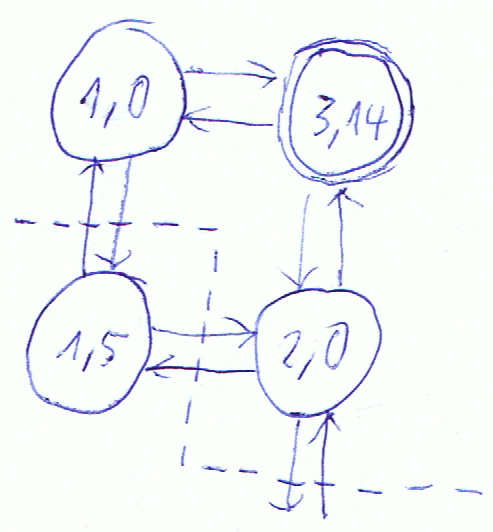 1,0
3,14
1,5
2,0